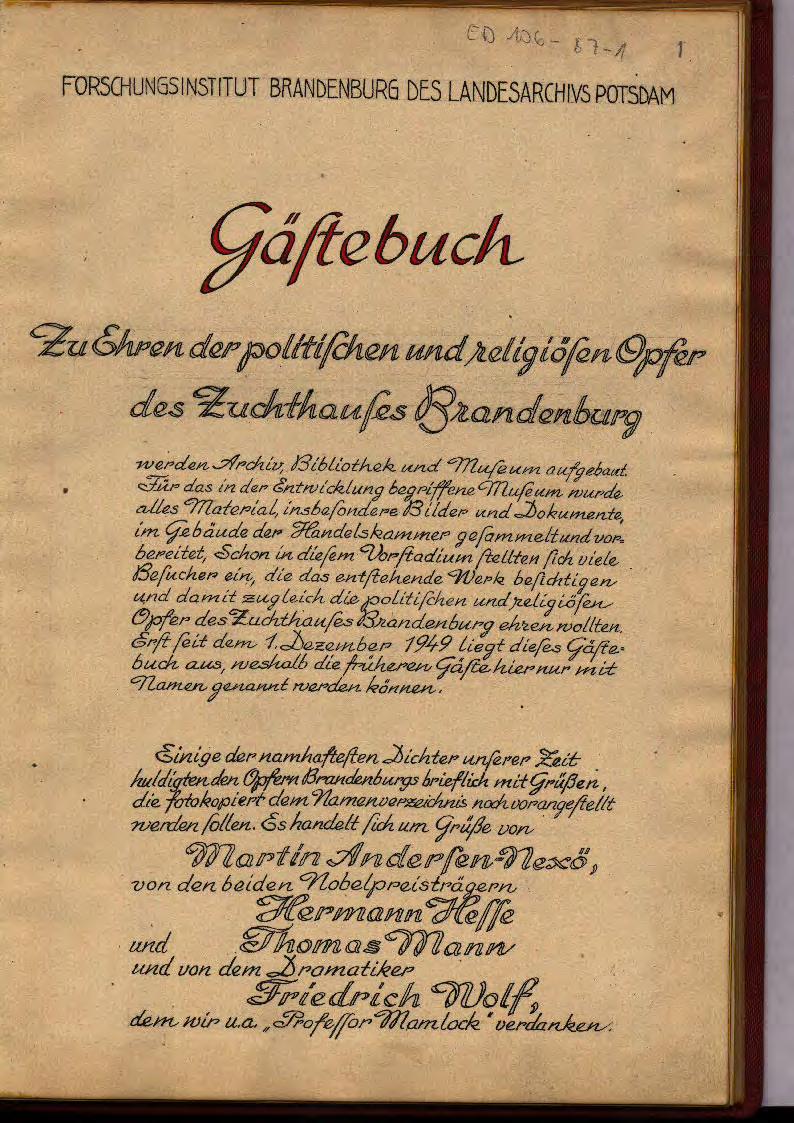 ED 106-87-1 1
FORSCHUNGSINSTITUT BRANDENBURG DES LANDESARCHIVS POTSDAM
Gäſtebuch
Zu Ehren der politiſchen und religiöſen Opfer
des Zuchthauſes Brandenburg
werden Archiv, Bibliothek und Muſeum aufgebaut.
Für das in der Entwicklung begriffene Muſeum wurde
alles Material, insbeſondere Bilder und Dokumente,
im Gebäude der Handelskammer geſammelt und vor-
bereitet, Schon in dieſem Vorſtadium ſtellten ſich viele
Beſucher ein, die das entſtehende Werk beſichtigen
und damit zugleich die politiſchen und religiöſen
Opfer des Zuchthauſes Brandenburg ehren wollten.
Erſt ſeit dem 1. Dezember 1949 liegt dieſes Gäſte-
buch aus, weshalb die früheren Gäſte hier nur mit
Namen genannt werden können.
Einige der namhafteſten Dichter unſerer Zeit
huldigten den Opfern Brandenburgs brieflich mit Grüßen,
die fotokopiert dem Namenverzeichnis noch vorangeſtellt
werden ſollen. Es handelt ſich um Grüße von
Martin Anderſen-Nexö,
von den beiden Nobelpreisträgern
Hermann Heſſe
und Thomas Mann
und von dem Dramatiker
Friedrich Wolf,
dem wir u.a. „Profeſſor Mamlock" verdanken.